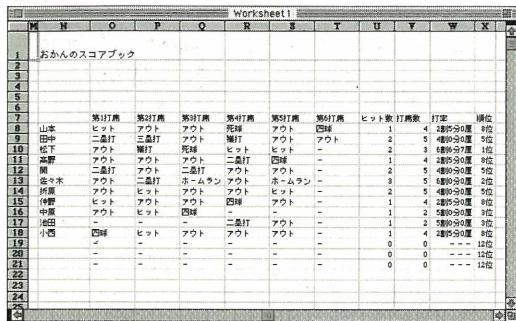 Worksheet1
M N O P Q R S T U V W X
1 おかんのスコアブック
2
3
4
5
6
7 第1打席 第2打席 第3打席 第4打席 第5打席 第6打席 ヒット数 打席数 打率 順位
8 山本 ヒット アウト アウト 死球 アウト 四球 1 4 2割5分0厘 8位
9 田中 二塁打 三塁打 アウト 犠打 アウト アウト 2 5 4割0分0厘 5位
10 松下 アウト 犠打 死球 ヒット ヒット - 2 3 6割6分7厘 1位
11 高野 アウト アウト アウト 二塁打 四球 - 1 4 2割5分0厘 8位
12 関 二塁打 アウト 二塁打 アウト アウト - 2 5 4割0分0厘 5位
13 佐々木 アウト 二塁打 ホームラン アウト ホームラン - 3 5 6割0分0厘 2位
14 折原 アウト ヒット アウト アウト ヒット - 2 5 4割0分0厘 5位
15 仲野 ヒット アウト アウト 四球 アウト - 1 4 2割5分0厘 8位
16 中原 アウト ヒット 四球 - - - 1 2 5割0分0厘 3位
17 池田 - - - 二塁打 アウト - 1 2 5割0分0厘 3位
18 小西 四球 ヒット アウト アウト アウト - 1 4 2割5分0厘 8位
19 - - - - - - 0 0 --- 12位
20 - - - - - - 0 0 --- 12位
21 - - - - - - 0 0 --- 12位
22
23
24
25